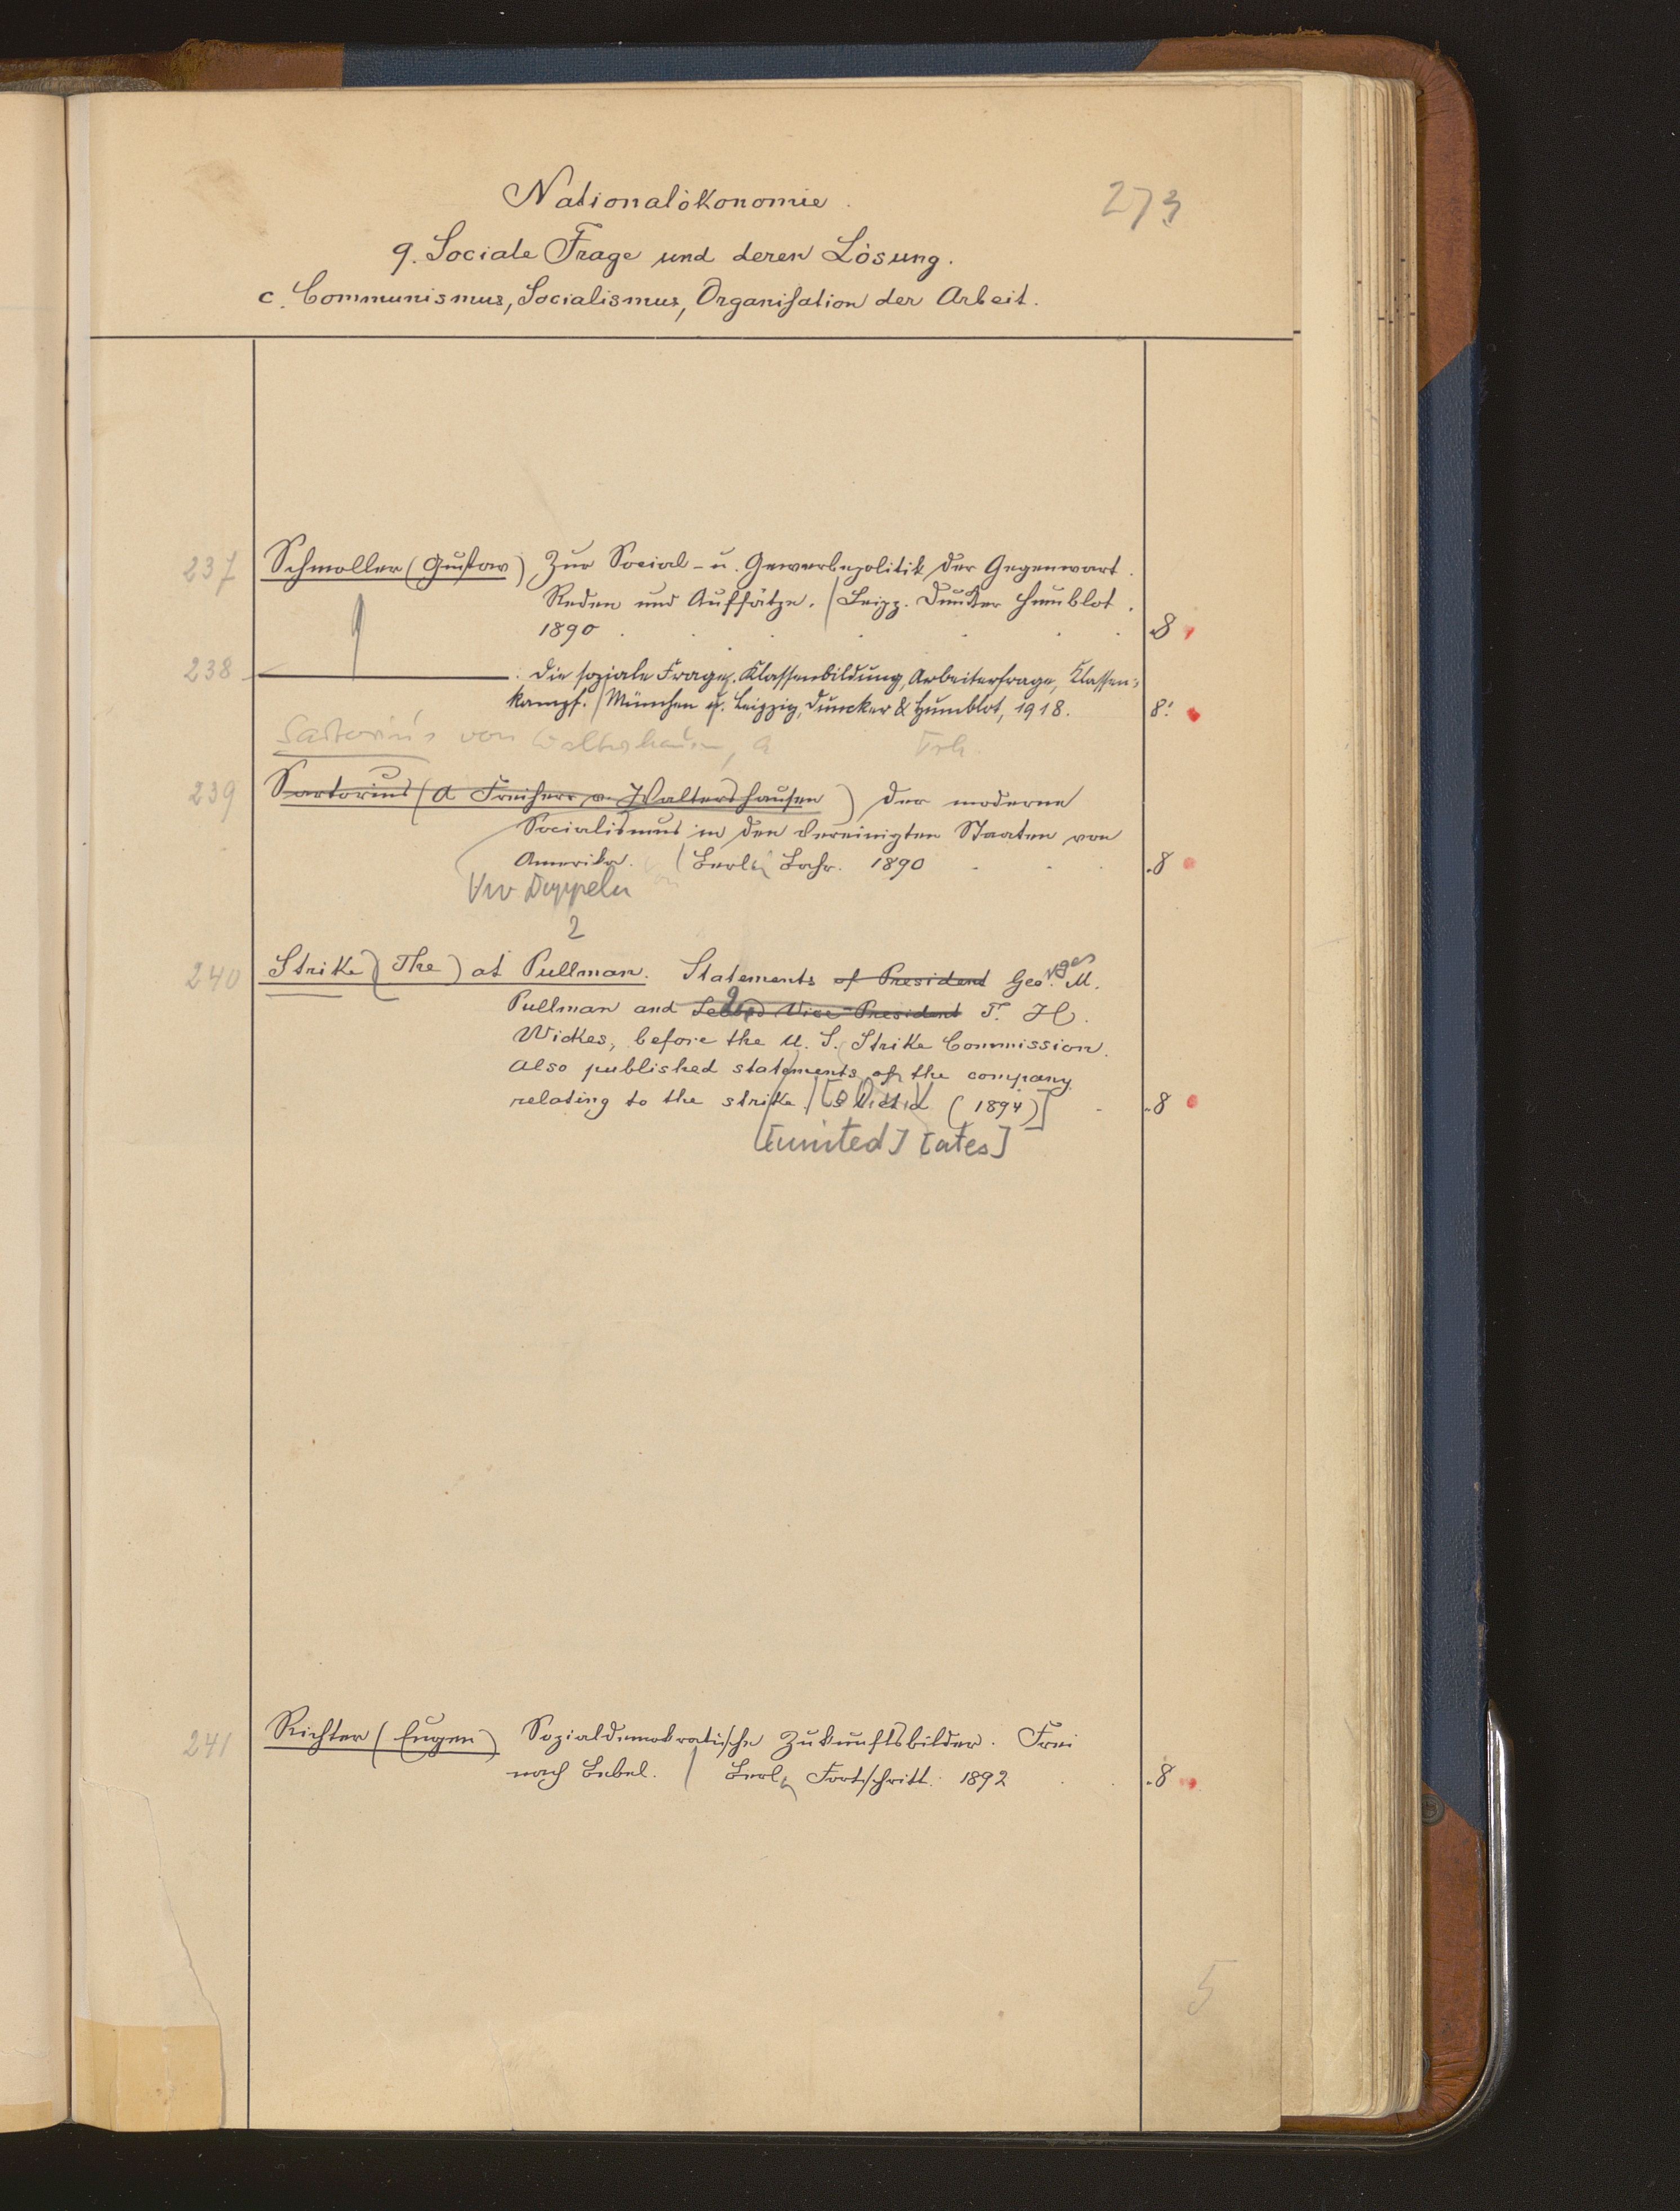 Nationalökonomie.
273
9. Sociale Frage und deren Lösung.
c. Communismus, Socialismus, Organisation der Arbeit.
237 Schmoller (Gustav) Zur Social- u. Gewerbepolitik der Gegenwart.
Reden und Aufsätze. / Leipz. Dunker Humblot.
1890 . . . . . . 8
238 ———. Die soziale Frage. Klassenbildung, Arbeiterfrage, Klassen-
kampf. / München u. Leipzig, Duncker & Humblot, 1918. 8:
Sartorius von Waltershausen, A Frh.
239 Sartorius (A Freiherr v. Waltershausen) Der moderne
Socialismus in den Vereinigten Staaten von
Amerika. / Berl. Bahr. 1890 . . . 8
Doppeln
2
240 Strike (The) at Pullman. Statements of President Geo. rges M.
Pullman and Second Vice-President T. H.
Wickes, before the U. S. Strike Commission.
Also published statements of the company
relating to the strike. / (1894)] . 8
[united] [ates]
241 Richter (Eugen) Sozialdemokratische Zukunftsbilder. Frei
nach Bebel. / Berl. Fortschritt. 1892 . . 8
5